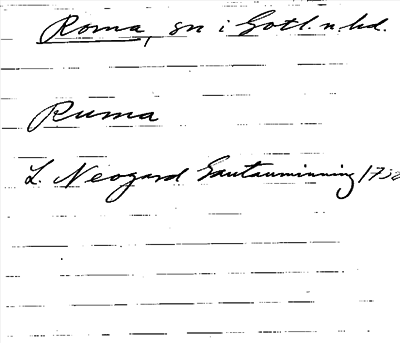 Roma, sn i Gotl. n. hd.
Ruma
L. Neogard Gautauminning